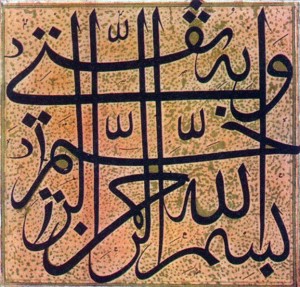 بسم الله الرحمن الرحيم
وبه ثقتي